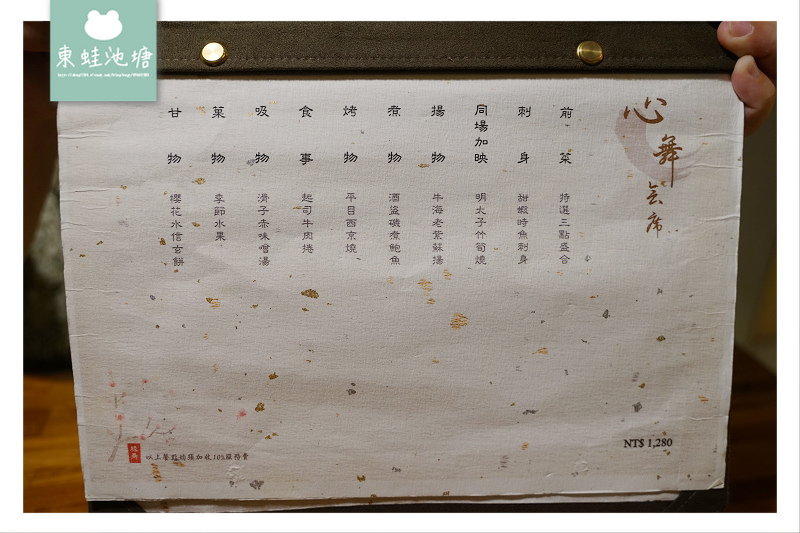 東蛙池塘
心舞會席
前菜
特選三點盛合
刺身
甜蝦時魚刺身
同場加映
明太子竹筍燒
揚物
牛海老紫蘇揚
煮物
酒盜磯煮鮑魚
烤物
平目西京燒
食事
起司牛肉捲
吸物
滑子赤味噌湯
菓物
季節水果
甘物
櫻花水信玄餅
NT$ 1,280
以上餐點均須加收10%服務費